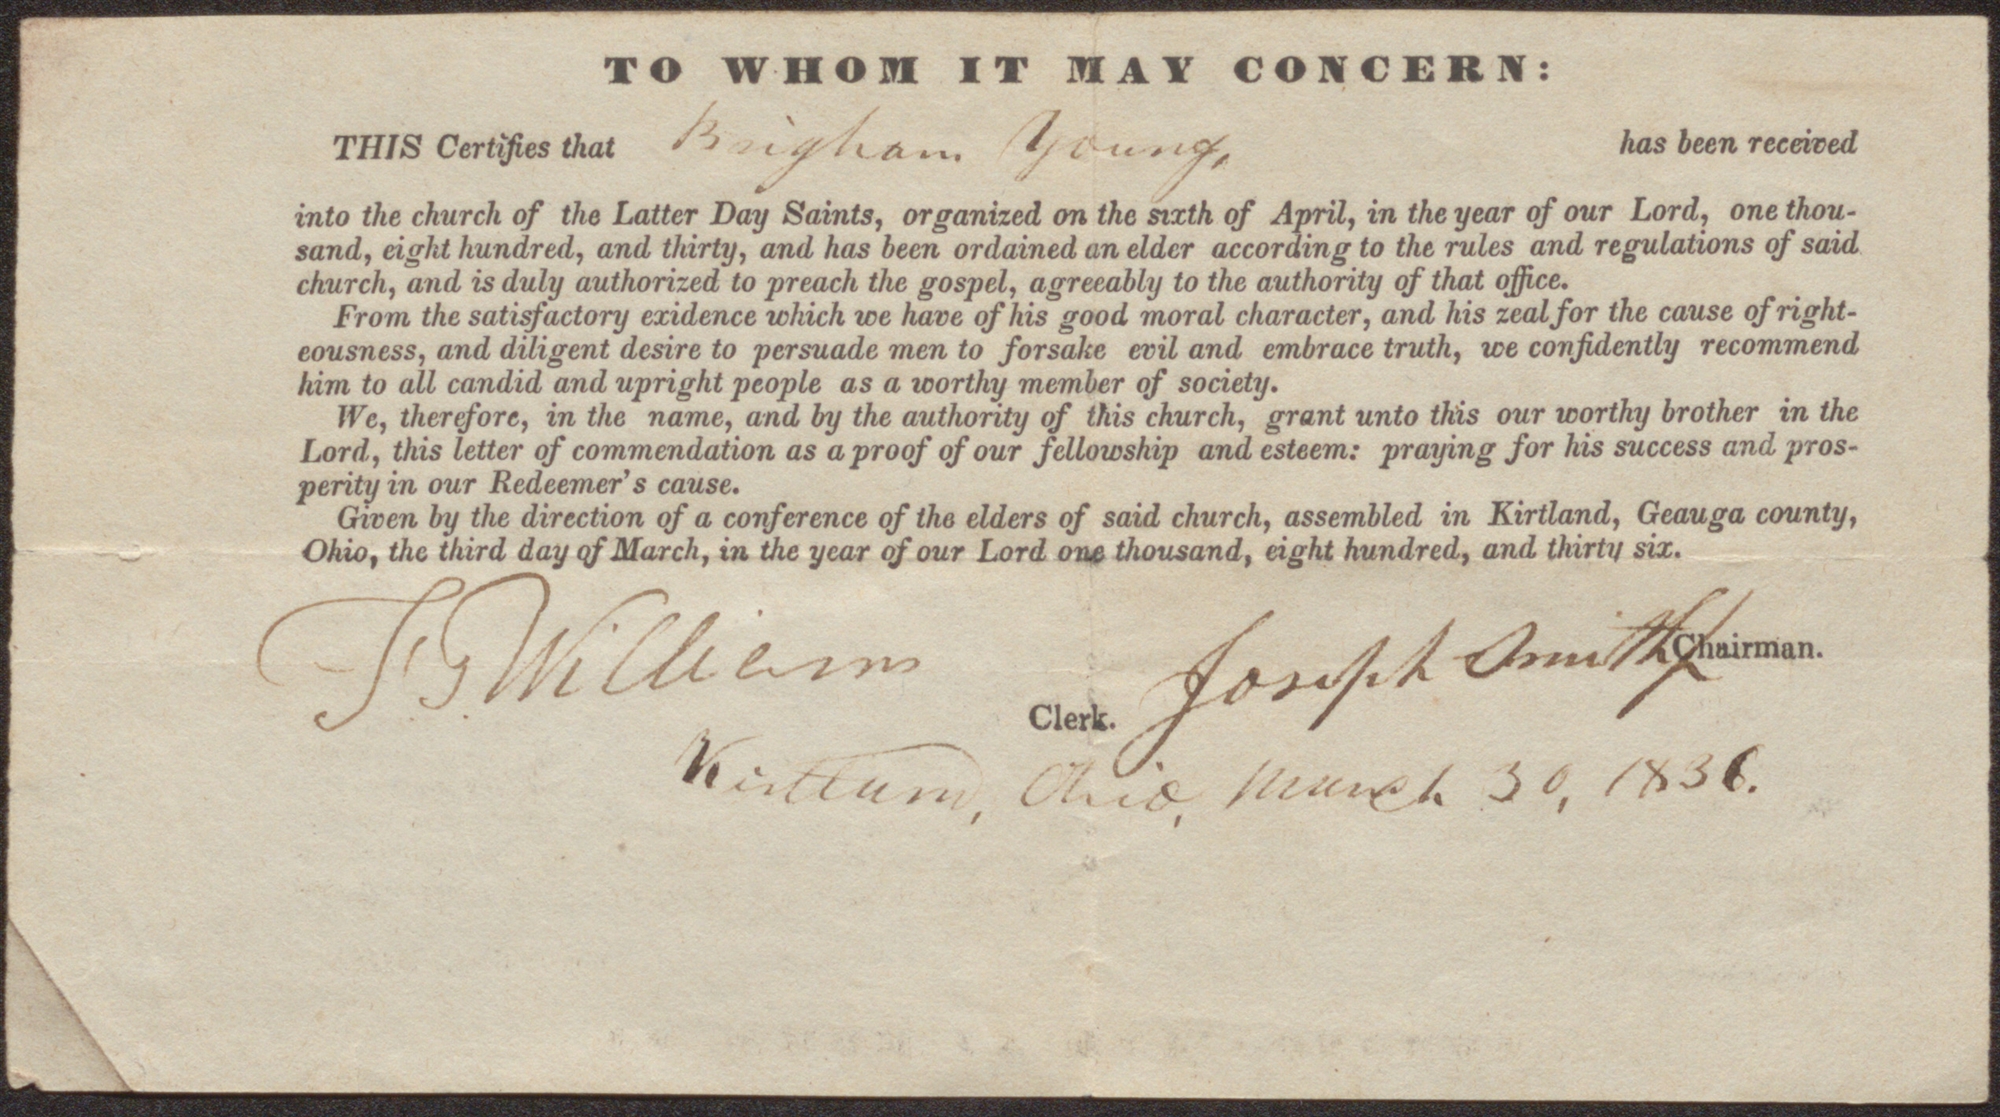 TO WHOM IT MAY CONCERN:
THIS Certifies that Brigham Young, has been received
into the church of the Latter Day Saints, organized on the sixth of April, in the year of our Lord, one thou-
sand, eight hundred, and thirty, and has been ordained an elder according to the rules and regulations of said
church, and is duly authorized to preach the gospel, agreeably to the authority of that office.
From the satisfactory exidence which we have of his good moral character, and his zeal for the cause of right-
eousness, and diligent desire to persuade men to forsake evil and embrace truth, we confidently recommend
him to all candid and upright people as a worthy member of society.
We, therefore, in the name, and by the authority of this church, grant unto this our worthy brother in the
Lord, this letter of commendation as a proof of our fellowship and esteem: praying for his success and pros-
perity in our Redeemer's cause.
Given by the direction of a conference of the elders of said church, assembled in Kirtland, Geauga county,
Ohio, the third day of March, in the year of our Lord one thousand, eight hundred, and thirty six.
Joseph Smith Jr Chairman.
F. G. Williams Clerk.
Kirtland, Ohio, March 30, 1836.